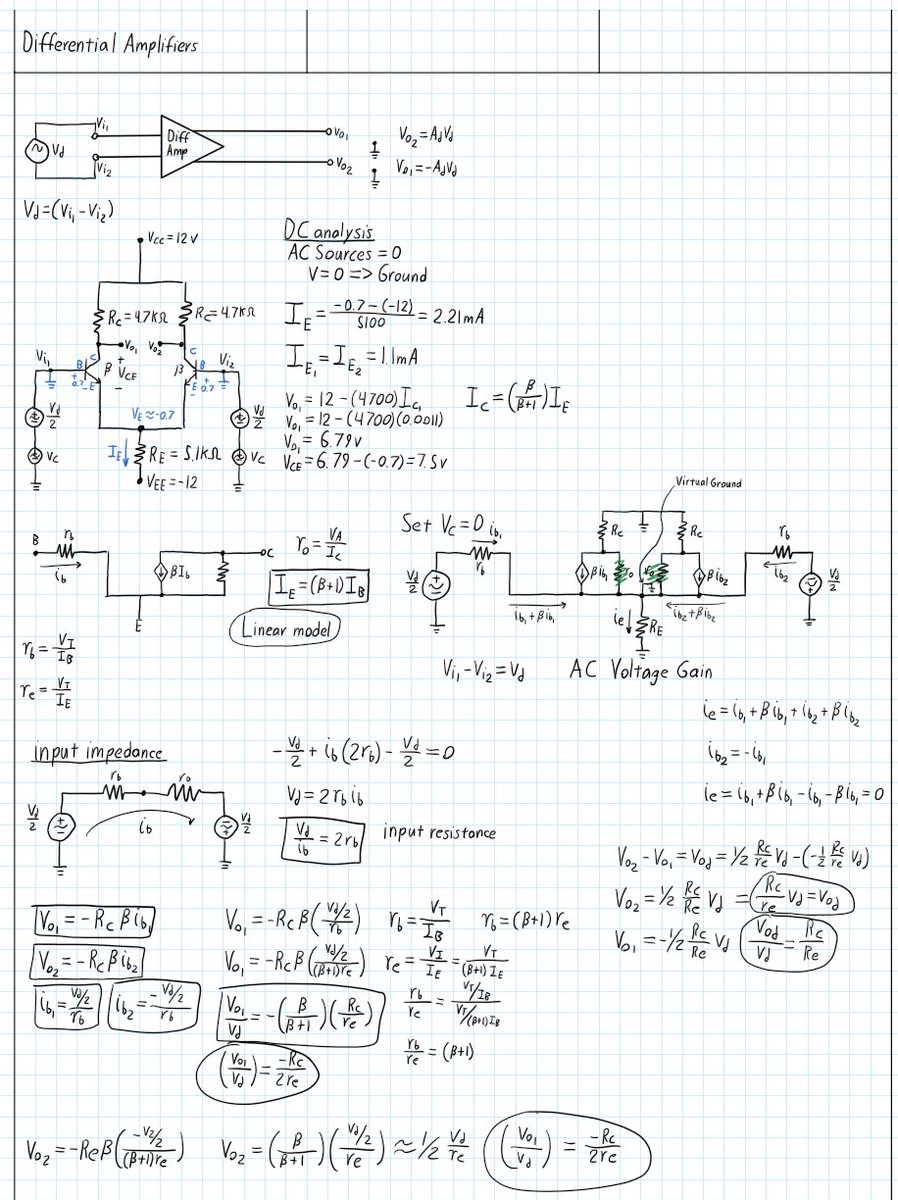 Differential Amplifiers
Vi₁
Vd
Vi₂
Diff
Amp
Vo₁
Vo₂
Vo₂=AdVd
Vo₁=-AdVd
Vd=(Vi₁-Vi₂)
Vcc=12V
Rc=4.7kΩ
Rc=4.7kΩ
Vo₁
Vo₂
C
C
Vi₁
B
0.7
E
β
+
VCE
-
β
B
Vi₂
E
0.7
Vd/2
VE≈-0.7
Vd/2
Vc
IE
RE=5.1kΩ
Vc
VEE=-12
DC analysis
AC Sources = 0
V=0 => Ground
IE = (-0.7-(-12))/5100 = 2.21mA
IE₁=IE₂=1.1mA
Vo₁=12-(4700)Ic₁
Vo₁=12-(4700)(0.0011)
Vo₁=6.79v
VCE=6.79-(-0.7)=7.5v
Ic=(β/(β+1))IE
B
rb
ib
βIb
C
E
ro=VA/Ic
IE=(β+1)IB
Linear model
rb=VI/IB
re=VT/IE
Set Vc=0
Virtual Ground
ib₁
rb
Vd/2
ib₁+βib₁
βib₁
Rc
ro
ro
Rc
βib₂
ie
RE
ib₂+βib₂
rb
ib₂
Vd/2
Vi₁-Vi₂=Vd
AC Voltage Gain
ie=ib₁+βib₁+ib₂+βib₂
ib₂=-ib₁
ie=ib₁+βib₁-ib₁-βib₁=0
input impedance
rb
ro
Vd/2
ib
Vd/2
-Vd/2+ib(2rb)-Vd/2=0
Vd=2rbib
Vd/ib=2rb
input resistance
Vo₂-Vo₁=Vod=1/2 Rc/re Vd-(-1/2 Rc/re Vd)
Vo₂=1/2 Rc/Re Vd = Rc/re Vd=Vod
Vo₁=-1/2 Rc/Re Vd
Vod/Vd=Rc/Re
Vo₁=-Rcβib₁
Vo₂=-Rcβib₂
ib₁=(Vd/2)/rb
ib₂=(-Vd/2)/rb
Vo₁=-Rcβ((Vd/2)/rb)
Vo₁=-Rcβ((Vd/2)/((β+1)re))
Vo₁/Vd=-(β/(β+1))(Rc/re)
(Vo₁/Vd)=-Rc/2re
rb=VT/IB
rb=(β+1)re
re=VI/IE=VT/((β+1)IE)
rb/re=(VT/IB)/(VT/(β+1)IB)
rb/re=(β+1)
Vo₂=-Reβ((-V2/2)/((β+1)re))
Vo₂=(β/(β+1))((Vd/2)/re)≈1/2 Vd/re
(Vo₁/Vd)=-Rc/2re